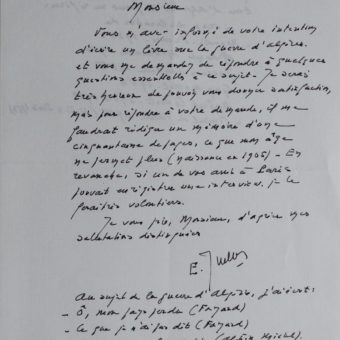 Monsieur
Vous m'avez informé de votre intention
d'écrire un livre sur la guerre d'Algérie
et vous me demandez de répondre à quelques
questions essentielles à ce sujet. Je serai
très heureux de pouvoir vous donner satisfaction,
mais pour répondre à votre demande, il me
faudrait rédiger un mémoire d'une
cinquantaine de pages, ce que mon âge
ne permet plus (naissance en 1905) - En
revanche, si un de vos amis à Paris
pouvait enregistrer une interview, je le
ferais très volontiers.
Je vous prie, Monsieur, d'agréer mes
salutations distinguées
E.
Au sujet de la guerre d'Algérie, j'ai écrit:
- Ô, mon pays perdu (Fayard)
- Ce que je n'ai pas dit (Fayard)
(Albin Michel)